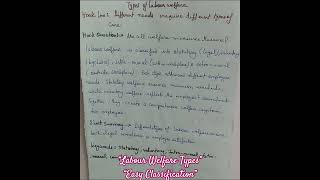 Types of Labour welfare
Hook Line: Different needs require different types of
care.
Hook Question: Are all welfare measures the same?
Labour welfare is classified into statutory (legal), voluntary
intra-mural (within workplace) & extra-mural
(outside workplace). Each type addresses different employee
needs. Statutory welfare ensures minimum standards
while voluntary welfare reflects the employer's commitment
Together they create a comprehensive welfare system
for employees.
Short Summary: Different types of labour welfare ensure
both legal compliance & employee satisfaction.
keywords: Statutory, voluntary, intra-mural, extra-
mural
"Labour Welfare Types"
"Easy Classification"